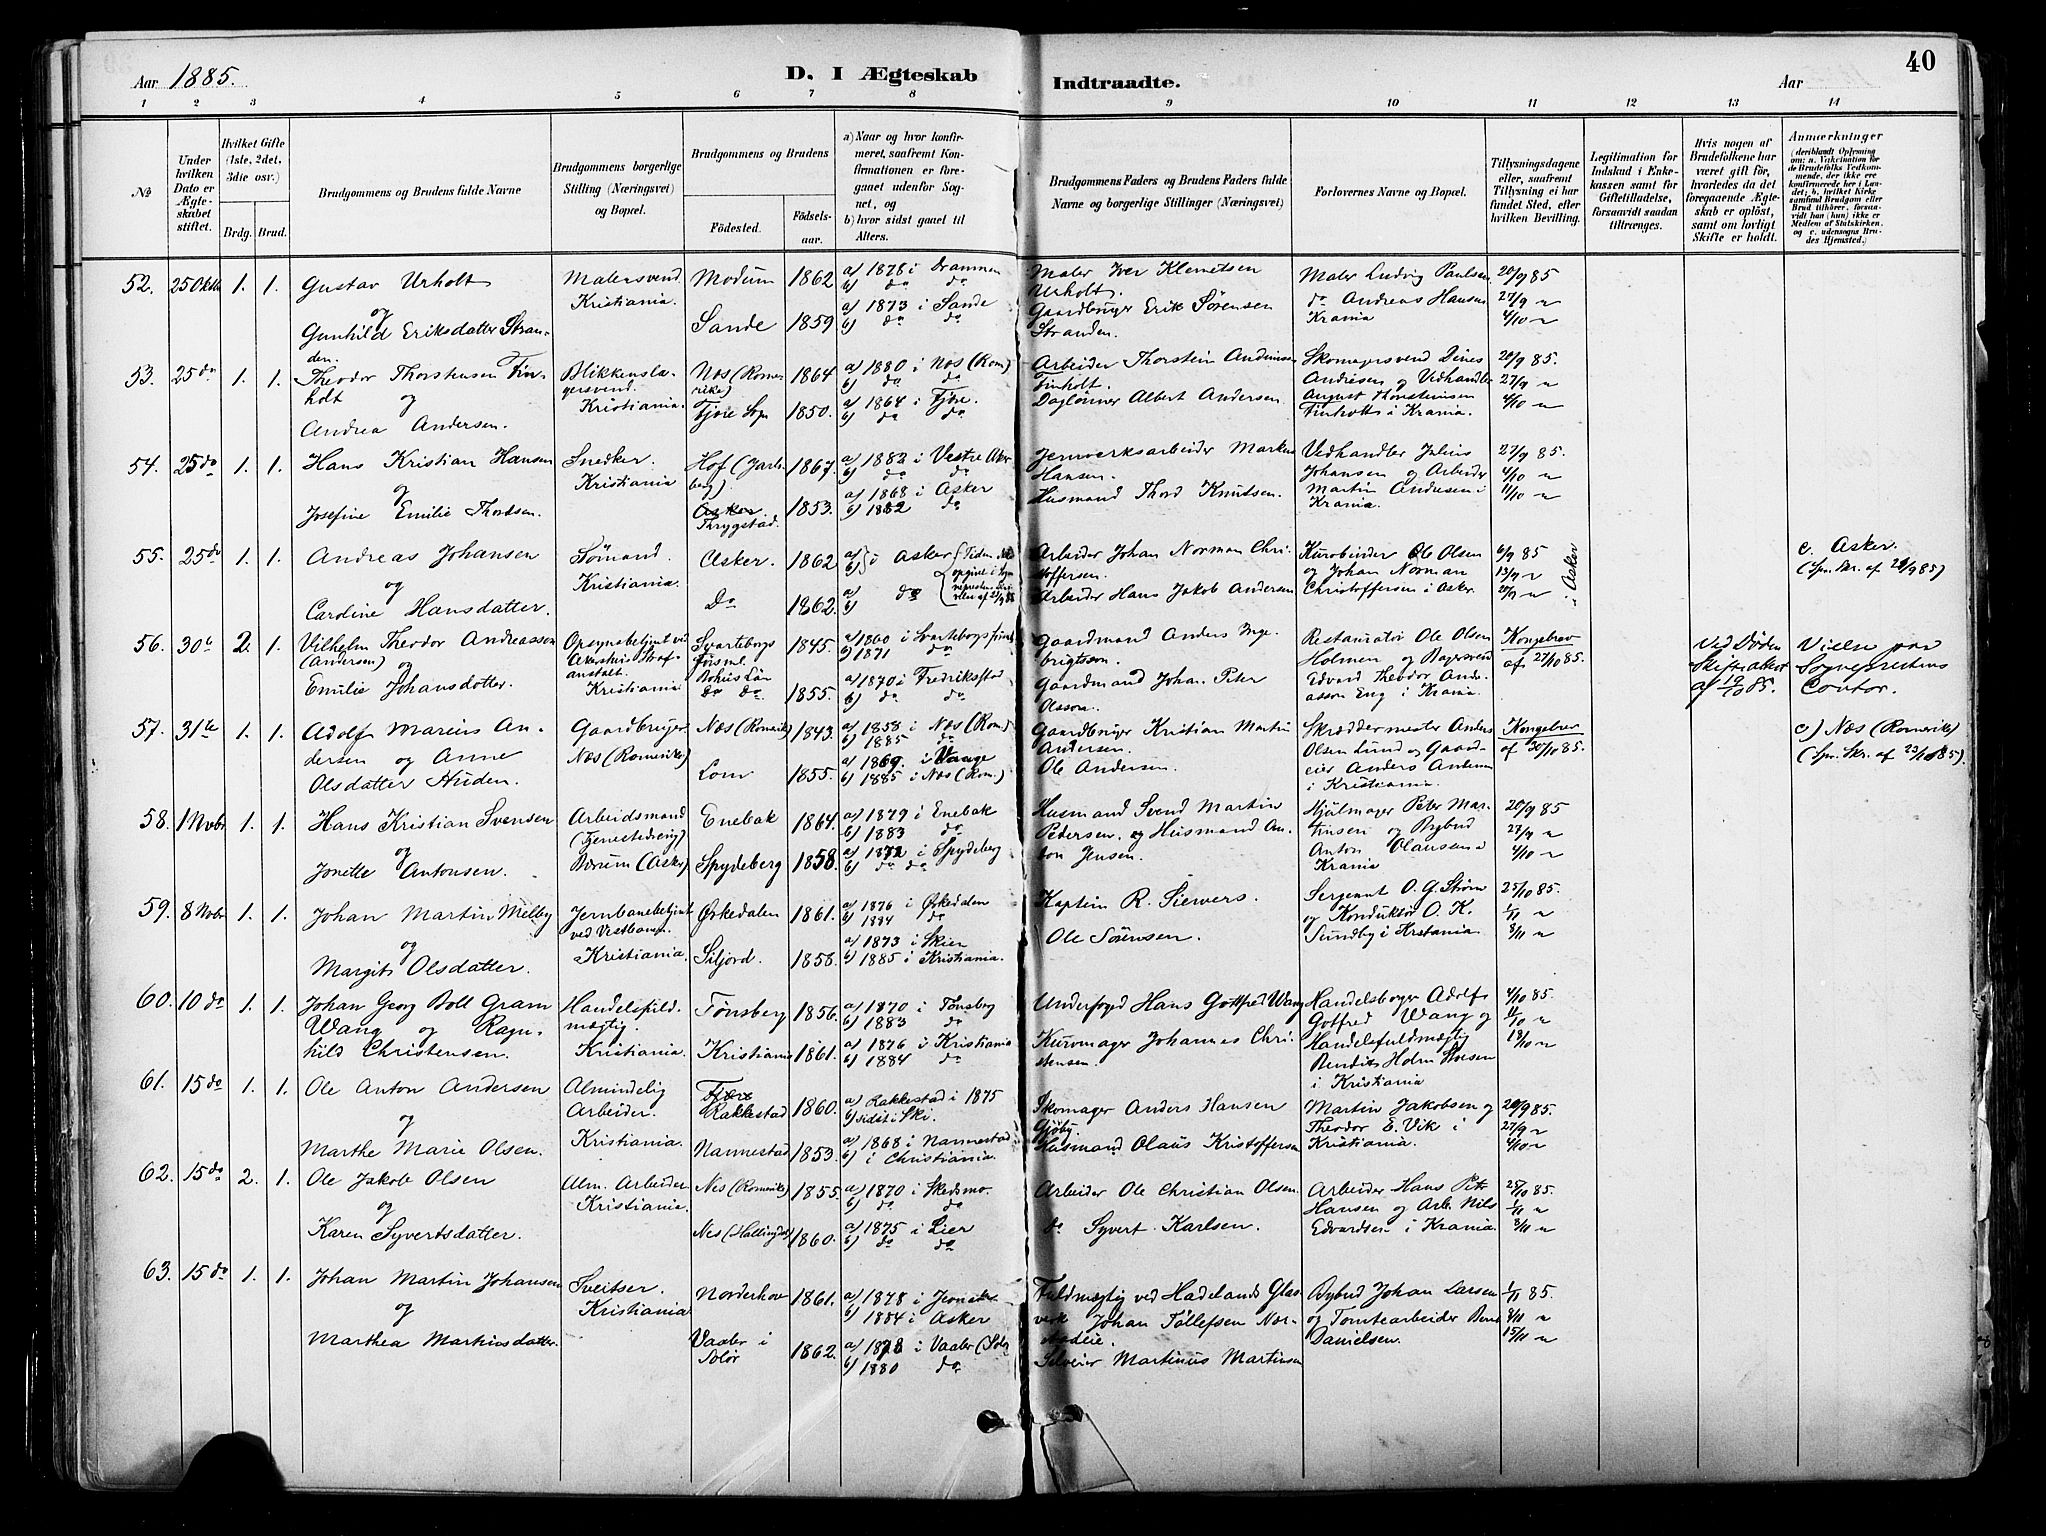 Aar 1885.
D. I Ægteskab
Indtraadte.
Aar
40
1 2 3 4 5 6 7 8 9 10 11 12 13 14
No
Under hvilken Dato er Ægteskabet stiftet.
Hvilket Gifte (1ste, 2det, 3die osv.)
Brdg. Brud.
Brudgommens og Brudens fulde Navne
Brudgommens borgerlige Stilling (Næringsvei) og Bopæl.
Brudgommens og Brudens
Fødested.
Fødselsaar.
a) Naar og hvor konfirmeret, saafremt Konfirmationen er foregaaet udenfor Sognet, og
b) hvor sidst gaaet til Alters.
Brudgommens Faders og Brudens Faders fulde Navne og borgerlige Stillinger (Næringsvei)
Forlovernes Navne og Bopæl.
Tillysningsdagene eller, saafremt Tillysning ei har fundet Sted, efter hvilken Bevilling.
Legitimation for Indskud i Enkekassen samt for Giftetilladelse, forsaavidt saadan tiltrænges.
Hvis nogen af Brudefolkene har været gift før, hvorledes da det foregaaende Ægteskab er opløst, samt om lovligt Skifte er holdt.
Anmærkninger (deriblandt Oplysning om: a. Vakcination for de Brudefolks Vedkommende, der ikke ere konfirmerede her i Landet; b. hvilket Kirkesamfund Brudgom eller Brud tilhører, forsaavidt han (hun) ikke er Medlem af Statskirken, og c. udensogns Brudes Hjemsted.)
52. 25 Oktb 1. 1. Gustav Urholt
og
Gunhild Eriksdatter Stranden.
Malersvend
Kristiania.
Modum 1862 a) 1878 i Drammen
b) do do
Sande 1859 a) 1873 i Sande
b) do do
Maler Iver Klemetsen
Urholt.
Gaardbruger Erik Sørensen
Stranden.
Maler Ludvig Paulsen
do Andreas Hansen
Krania
20/9 85
27/9 "
4/10 "
53. 25 do 1. 1. Theodor Thorstensen Finholt
og
Andrea Andersen.
Blikkenslagersvend.
Kristiania.
Næs (Romerike) 1864 a) 1880 i Næs (Rom)
b) do do
Tjøre Sogn 1850. a) 1864 i Tjøre.
b) do do
Arbeider Thorstein
Finholt.
Daglønner Albert Andersen
Skomagersvend Dines
Andresen og Vedhandler
August Thorsteinsen
Finholt i Krania.
20/9 85.
27/9 "
4/10 "
54. 25 do 1. 1. Hans Kristian Hansen
og
Josefine Emilie Thordsen.
Snedker.
Kristiania
Hof (Jarlsberg). 1867. a) 1882 i Vestre Aker
b) do do
Asker
Thrygstad. 1853. a) 1868 i Asker
b) 1882 do
Jernverksarbeider Markus
Hansen.
Husmand Thord Knutsen.
Vedhandler Julius
Johansen og Arbeider
Martin Andresen i
Krania.
27/9 85.
4/10 "
11/10 "
55. 25 do 1 1. Andreas Johansen
og
Caroline Hansdatter.
Sømand.
Kristiania.
Asker. 1862 a) b) i Asker
Do 1862. a) b) do
Arbeider Johan Norman Christoffersen.
Arbeider Hans Jakob Andersen
Kurvbinder Ole Olsen
og Johan Norman
Christoffersen i Asker.
6/9 85
13/9 "
20/9 "
i Asker
c. Asker.
56. 30te 2. 1. Vilhelm Theodor Andreasson
(Andersen) og
Emilie Johansdatter.
Opsynsbetjent ved
Akershus Strafanstalt.
Kristiania
Svarteborgs
Bohus Län 1845. a) 1860 i Svarteborgs
b) 1871 do
do do 1855. a) 1870 i Fredrikstad
b) do do
Gaardmand Anders Ingebrigtsson.
Gaardmand Johan Peter
Olsson.
Restauratør Ole Olsen
Holmen og Bagersvend
Edvard Theodor Andreasson
Eng i Krania.
Kongebrev
af 27/10 85.
Ved Døden
Skifteattest
af 19/10 85.
Vielse paa
Sognepræstens
Contor.
57. 31te 1. 1. Adolf Marius Andersen
og Anne
Olsdatter Huden.
Gaardbruger
Næs (Romerike)
Næs (Romerik) 1843. a) 1858 i Næs (Rom.)
b) 1885 do
Lom 1855. a) 1869. i Vaage
b) 1885 i Næs (Rom.)
Gaardbruger Kristian Martin
Andersen.
Ole Andersen.
Skræddermester Anders
Olsen Lund og Gaardeier
Anders Andersen
i Kristiania.
Kongebrev
af 30/10 85.
c) Næs (Romerike)
(Spr. Skr. af 23/10 85).
58. 1 Novbr 1. 1. Hans Kristian Svensen
og
Jonette Antonsen.
Arbeidsmand
Bærum (Asker)
Enebak 1864. a) 1879 i Enebak
b) 1883 do
Spydeberg 1858. a) 1872 i Spydeberg
b) do do
Husmand Svend Martin
Petersen. og Husmand Anton
Jensen.
Hjulmager Peter Martinsen
og Bybud
Anton Olaussen i
Krania
20/9 85
27/9 "
4/10 "
59. 8 Novbr 1. 1. Johan Martin Melby
og
Margit Olsdatter.
Jernbanebetjent
ved Vestbanen.
Kristiania
Ørkedalen 1861. a) 1876 i Ørkedalen
b) 1884 do
Siljord. 1858. a) 1873 i Skien
b) 1885 i Kristiania.
Kaptein R. Siewers.
Ole Sørensen.
Sergeant O. G. Strøm
og Konduktør O. K.
Sundby i Kristania.
25/10 85.
1/11 "
8/11 "
60. 10 do 1. 1. Johan Georg Boll Gram
Wang og Ragnhild
Christensen.
Handelsfuldmægtig.
Kristiania.
Tønsberg 1856. a) 1870 i Tønsberg
b) 1883 do
Kristiania 1861. a) 1876 i Kristiania
b) 1884 do
Underfoged Hans Gottfred Wang
Kurvmager Johannes Christensen.
Handelsborger Adolf
Gotfred Wang og
Handelsfuldmægtig
Bendix Holm
i Kristiania
4/10 85.
11/10 "
18/10 "
61. 15 do 1. 1. Ole Anton Andersen
og
Marthe Marie Olsen.
Almindelig
Arbeider.
Kristiania.
Rakkestad 1860. a) Rakkestad i 1875
b) sidst i Ski.
Nannestad 1853. a) 1868 i Nannestad
b) i Christiania.
Skomager Anders Hansen
Gjøby.
Husmand Olaus Kristoffersen
Martin Jakobsen og
Theodor E. Vik i
Kristiania.
20/9 85.
27/9 "
4/10 "
62. 15 do 2. 1. Ole Jakob Olsen
og
Karen Syvertsdatter.
Alm. Arbeider
Kristiania.
Nes (Romerike) 1855. a) 1870 i Skedsmo.
b) do do
Nes (Hallingdal) 1860. a) 1875 i Lier
b) do do
Arbeider Ole Christian Olsen.
do Syvert Karlsen.
Arbeider Hans Petter
Hansen og Arb. Nils
Edvardsen i Krania
25/10 85.
1/11 "
8/11 "
63. 15 do 1. 1. Johan Martin Johansen
og
Marthea Martinsdatter.
Sveitser.
Kristiania
Norderhov 1861. a) 1878 i Jevnaker
b) 1884 i Asker
Vaaler i
Solør 1862. a) 1878 i Vaaler (Solør
b) 1880 do
Fuldmægtig ved Hadelands Glasverk
Johan Tollefsen
Selveier Martinus Martinsen
Bybud Johan Larsen
og Tomtearbeider Bernt
Danielsen.
1/11 85.
8/11 "
15/11 "